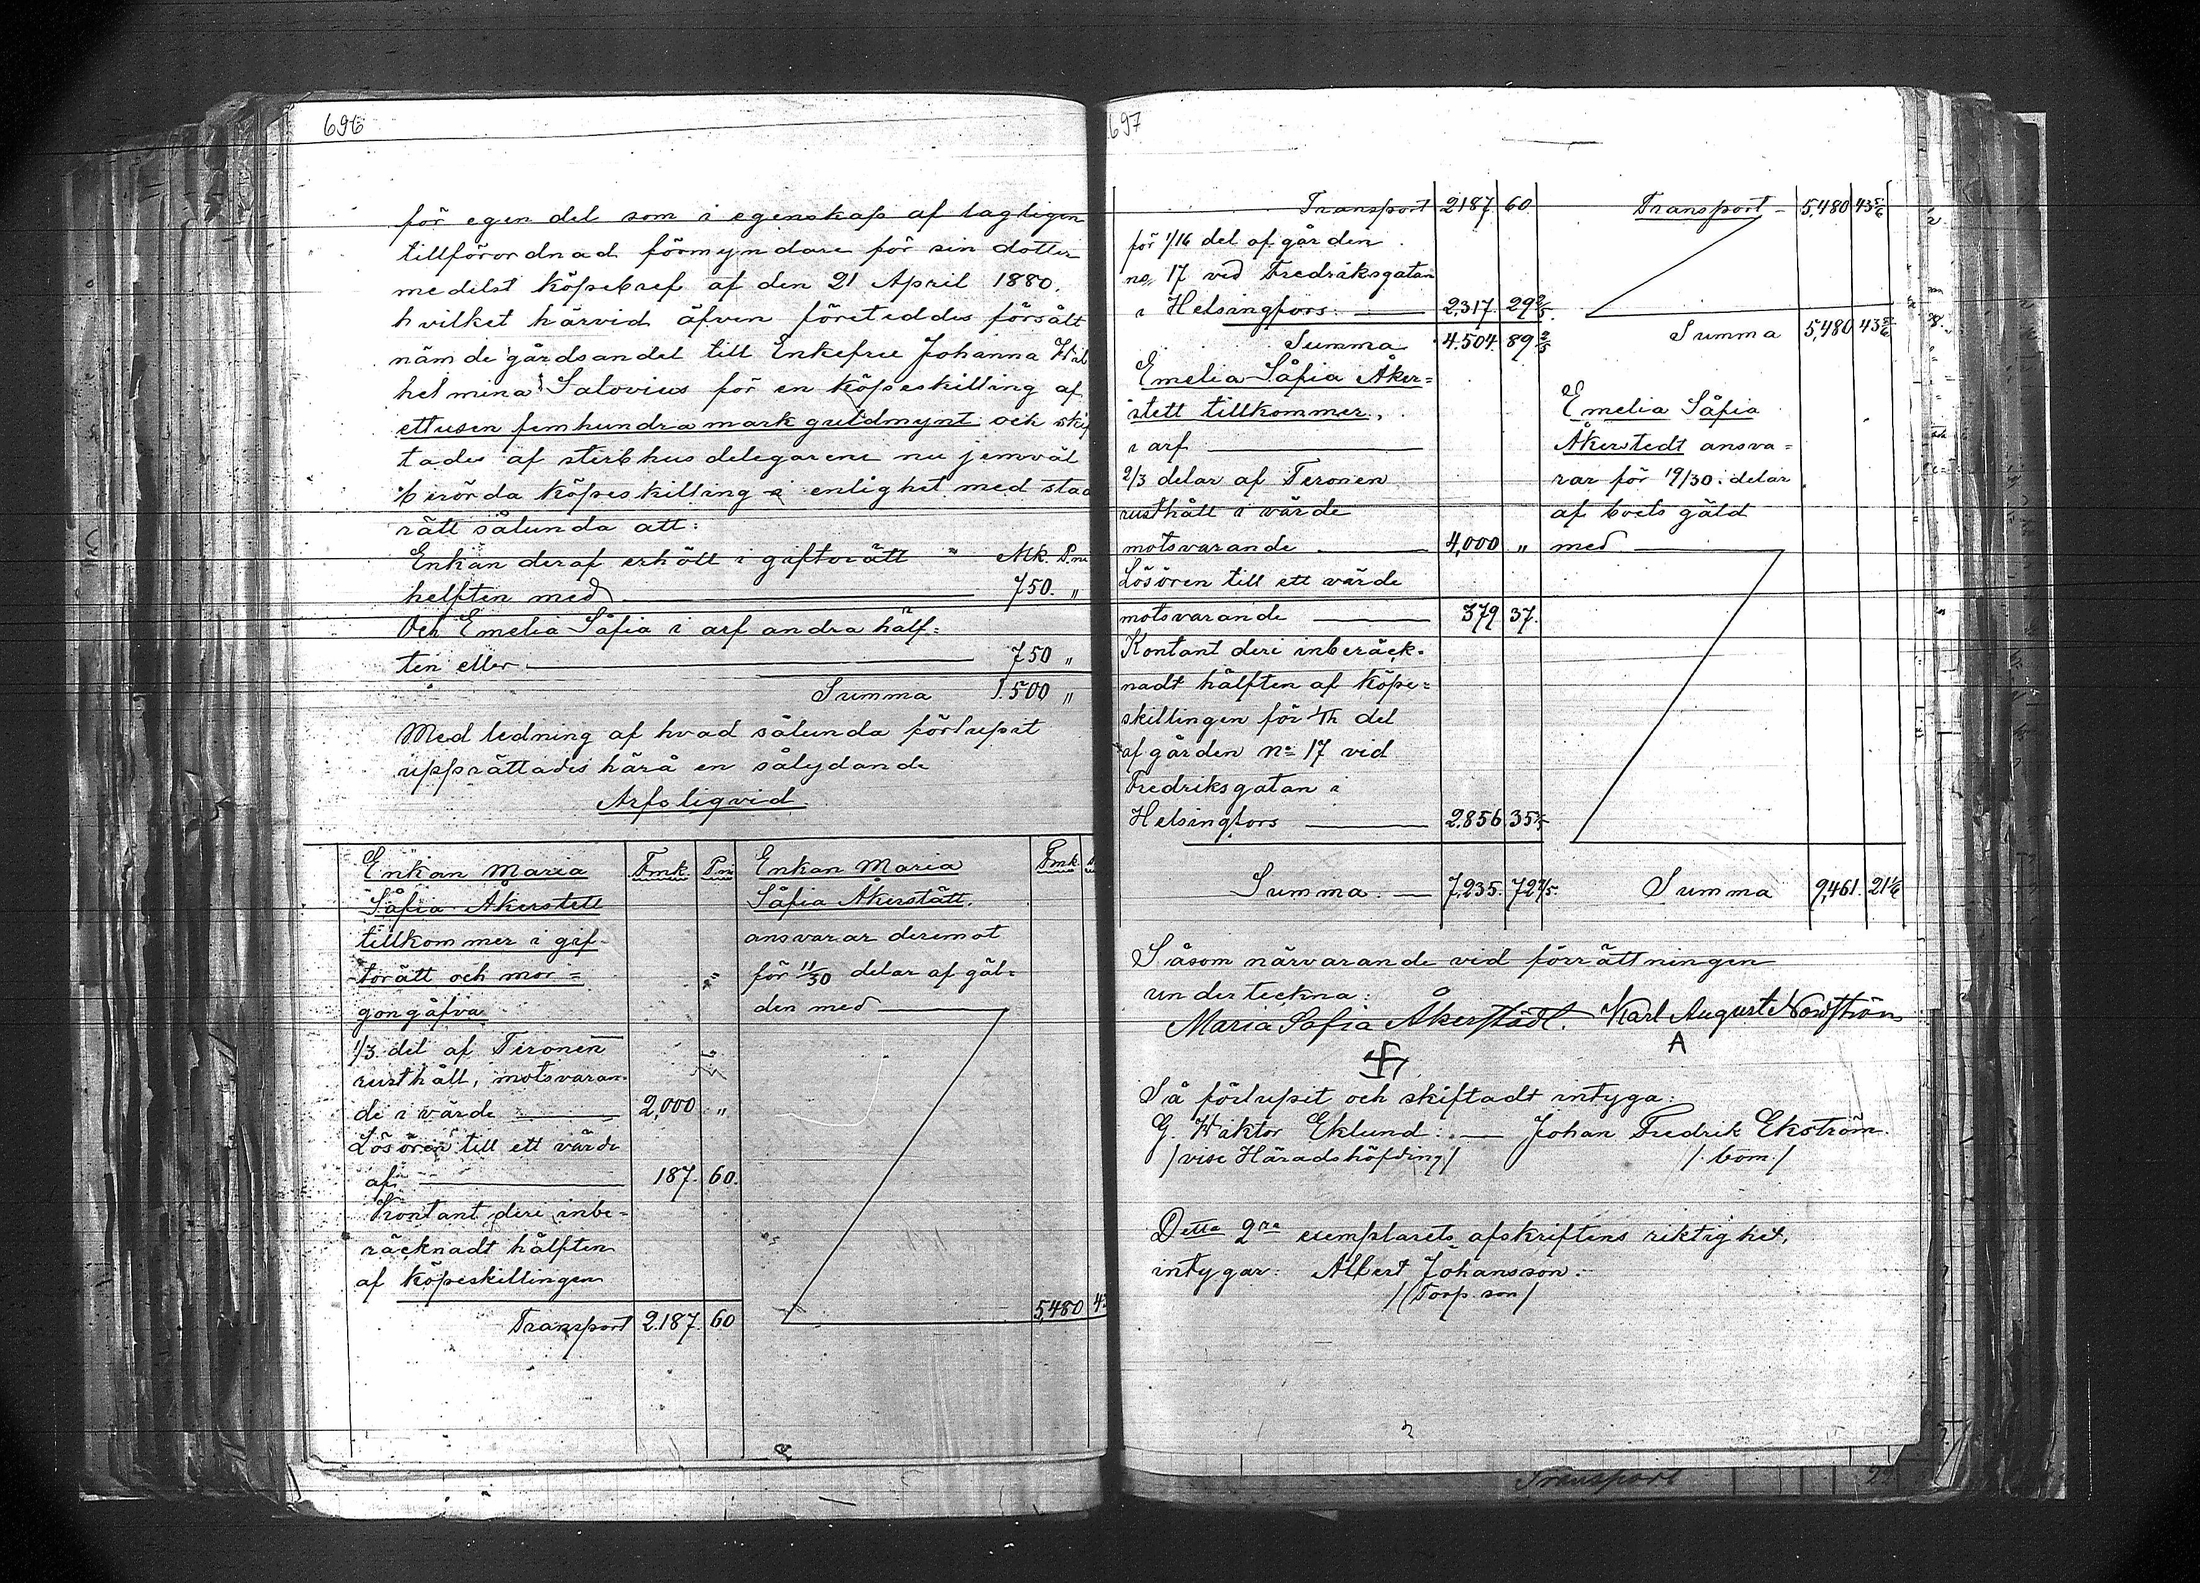 696
för egen del som i egenskap af lagligen
tillförordnad förmyndare för sin dotter
medelst köpebref af den 21 April 1880.
hvilket härvid äfven företeddes försålt
nämde gårdsandel till Enkefru Johanna Wil
helmina Salovius för en köpeskilling af
ettusen femhundra mark guldmynt och skif
tades af sterbhusdelegarene nu jemväl
berörda köpeskilling i enlighet med stad
rätt sålunda att:
Enkan deraf erhöll i giftorätt " Mk. Pni
helften med 750. "
Och Emelia Såfia i arf andra hälf=
ten eller 750 "
Summa 1.500 "
Med ledning af hvad sålunda förlupit
upprättades härå en sålydande
Arfsliqvid
Enkan Maria Fmk. Pni
Såfia Åkerstett
tillkommer i gif-
torätt och mor=
gongåfva
1/3 del af Teronen
rusthåll, motsvaran-
de i värde 2,000 "
Lösören till ett värde
af 187. 60.
Kontant deri inbe-
räcknadt hälften
af köpeskillingen
Transport 2.187. 60
Enkan Maria Fmk.
Såfia Åkerstätt.
ansvarar deremot
för 11/30 delar af gäl=
den med
5,480 43
697
Transport 2187. 60.
för 1/16 del af gården
no, 17 ved Fredriksgatan
i Helsingfors: 2,317. 29 2/5.
Summa 4.504. 89 2/5
Emelia Såfia Åker=
stett tillkommer,
i arf
2/3 delar af Teronen
rusthåll i värde
motsvarande 4,000 "
Lösören till ett värde
motsvarande 379 37.
Kontant deri inberäck-
nadt hälften af köpe=
skillingen för del
af gården No 17 vid
Fredriksgatan i
Helsingfors 2.856. 35
Summa: 7,235. 72
Transport 5,480 43 5/6
Summa 5,480 43 5/6
Emelia Såfia
Åkerstedt ansva=
rar för 19/30. delar
af boets gäld
med
Summa 9,461. 21 1/6
Såsom närvarande vid förrättningen
underteckna:
Maria Sofia Åkerstädt. Karl August Nordström
A
Så förlupit och skiftadt intyga:
G. Waktor Eklund: Johan Fredrik Ekström.
/vise Häradshöfding/ /: bom:/
Detta 2ra exemplarets afskriftens riktighet,
intygar: Albert Johansson.
/(Torp. son/
Transport